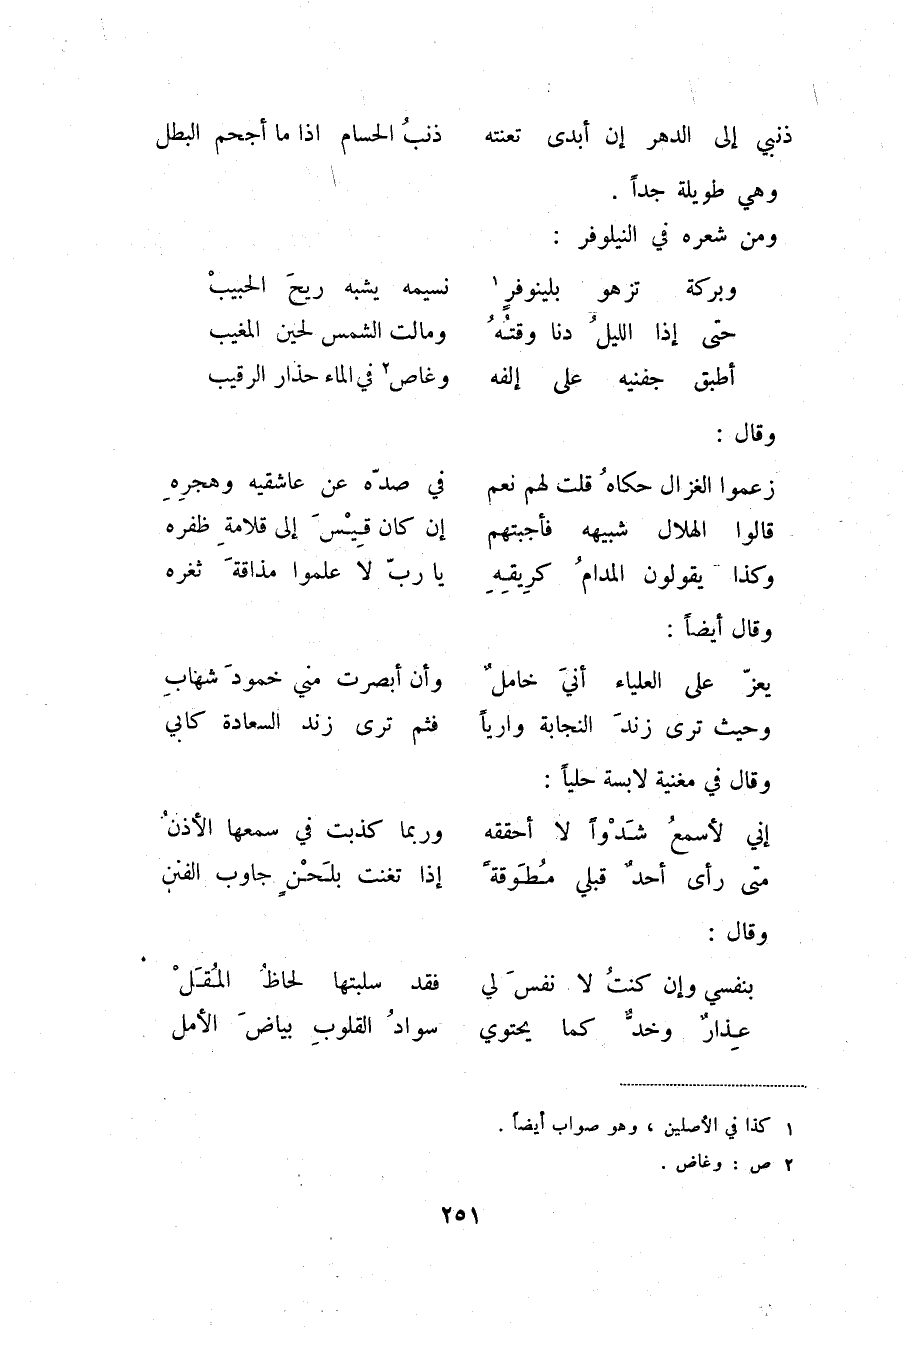 ذنبي إلى الدهر إن أبدى تعنته ذنبُ الحسام اذا ما أجحم البطل
وهي طويلة جداً .
ومن شعره في النيلوفر :
وبركة تزهو بلينوفرٍ ١ نسيمه يشبه ريحَ الحبيبْ
حتّى إذا الليلُ دنا وقتُهُ ومالت الشمس لحين المغيب
أطبق جفنيه على إلفه وغاص ٢ في الماء حذار الرقيب
وقال :
زعموا الغزال حكاهُ قلت لهم نعم في صدّه عن عاشقيه وهجرِهِ
قالوا الهلال شبيهه فأجبتهم إن كان قِيْسَ إلى قلامةِ ظفره
وكذا يقولون المدامُ كرِيقِهِ يا ربّ لا علموا مذاقةَ ثغره
وقال أيضاً :
يعزّ على العلياء أنيَ خاملٌ وأن أبصرت مني خمودَ شهابِ
وحيث ترى زندَ النجابة وارياً فثم ترى زند السعادة كابي
وقال في مغنية لابسة حلياً :
إني لأسمعُ شَدْواً لا أحققه وربما كذبت في سمعها الأذنُ
متى رأى أحدٌ قبلي مُطَوقةً إذا تغنت بلَحْنٍ جاوب الفنن
وقال :
بنفسي وإن كنتُ لا نفسَ لي فقد سلبتها لحاظُ المُقَلْ
عِذارٌ وخدٌّ كما يحتوي سوادُ القلوبِ بياضَ الأمل
١ كذا في الأصلين ، وهو صواب أيضاً .
٢ ص : وغاض .
٢٥١